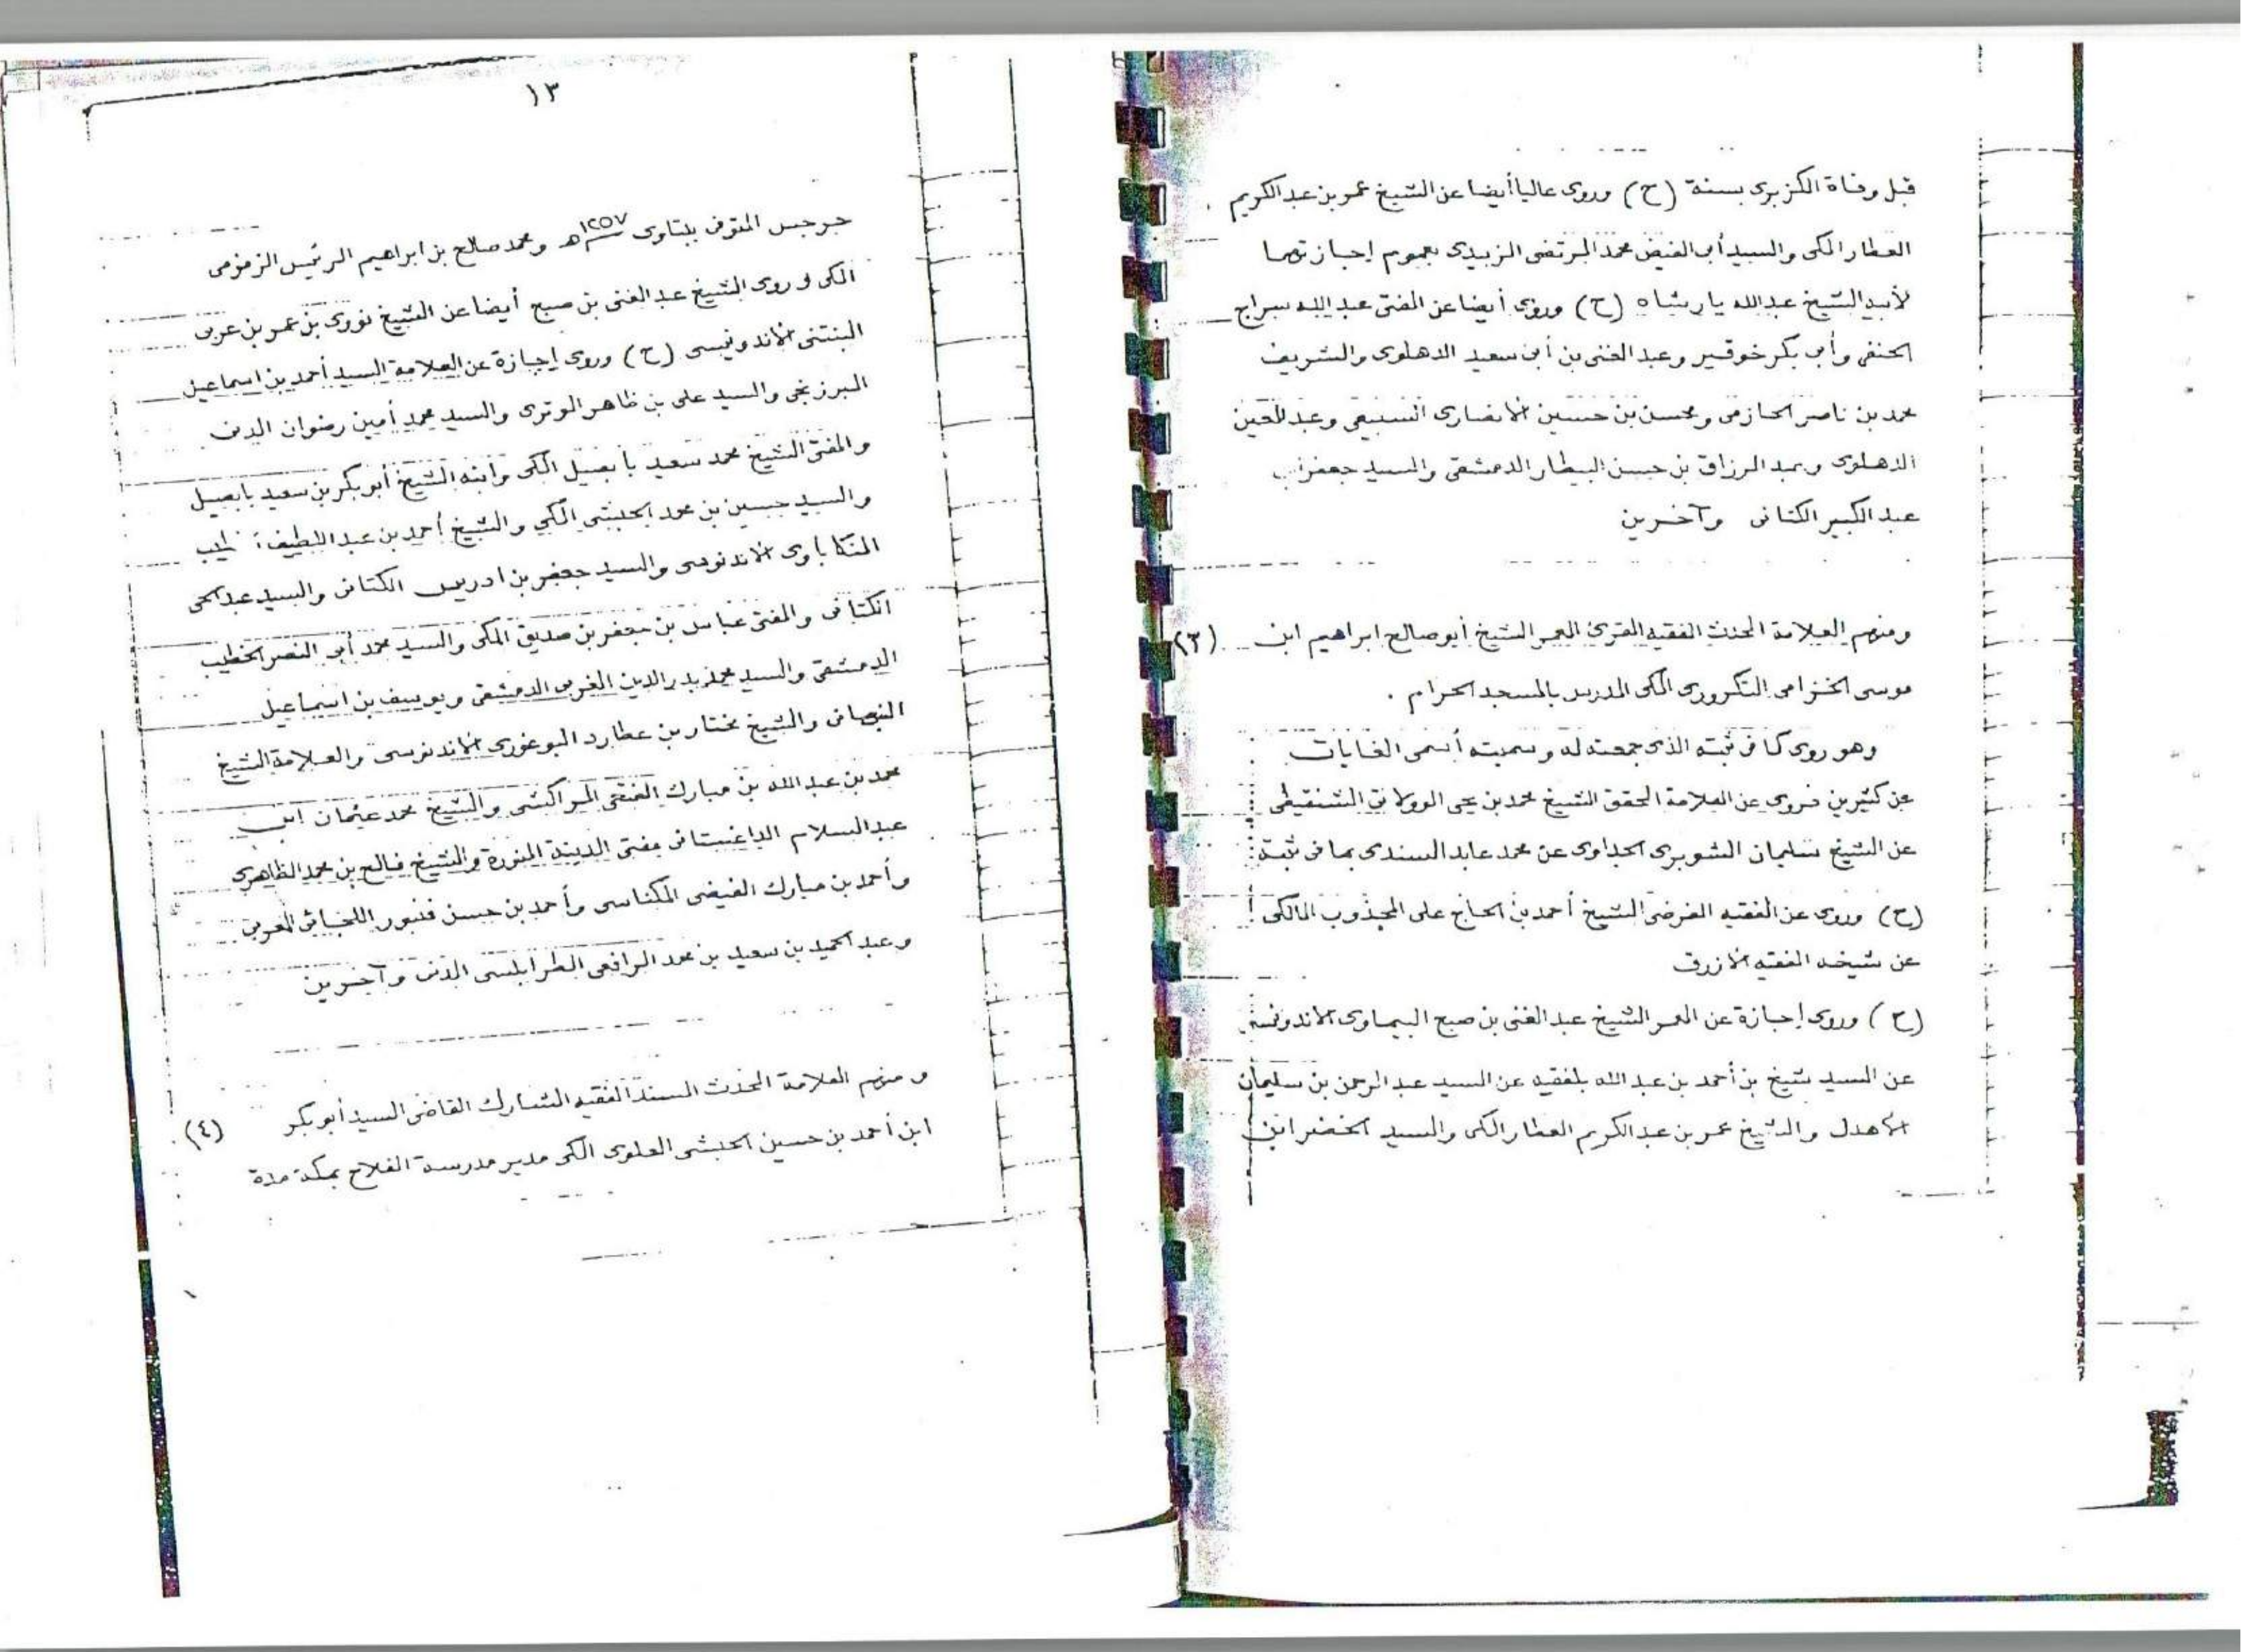 قبل وفاة الكزبرى بسنة (ح) وروى عاليا أيضا عن الشيخ عمر بن عبد الكريم
العطار المكى والسيد أبى الفيض محمد المرتضى الزبيدى بعموم إجازتهما
لأبيه الشيخ عبد الله يارشاه (ح) وروى أيضا عن المفتى عبد الله سراج
الحنفى وأبى بكر خوقير وعبد الغنى بن أبى سعيد الدهلوى والشريف
محمد بن ناصر الحازمى ومحسن بن حسين الانصارى السبيعى وعبد
الدهلوى وعبد الرزاق بن حسن البيطار الدمشقى والسيد جعفر بن
عبد الكبير الكتانى وآخرين
ومنهم العلامة المحدث الفقيه المقرئ المعمر الشيخ أبو صالح ابراهيم ابن (٣)
موسى الخزامى التكرورى المكى المدرس بالمسجد الحرام .
وهو روى كما فى ثبته الذى جمعته له وسميته أسمى الغايات
عن كثيرين فروى عن العلامة المحقق الشيخ محمد بن يحى الولاتى الشنقيطى
عن الشيخ سليمان الشوبرى الحداوى عن محمد عابد السندى بما فى ثبته
(ح) وروى عن الفقيه الفرضى الشيخ أحمد بن الحاج على المجذوب المالكى
عن شيخه الفقيه الازرق
(ح) وروى إجازة عن المعمر الشيخ عبد الغنى بن صبح البيماوى الاندونسى
عن السيد شيخ بن أحمد بن عبد الله بلفقيه عن السيد عبد الرحمن بن سليمان
الاهدل والشيخ عمر بن عبد الكريم العطار المكى والسيد الخضر ابن
١٣
جرجيس المتوفى ببتاوى ١٢٥٧هـ ومحمد صالح بن ابراهيم الرئيس الزمزمى
المكى وروى الشيخ عبد الغنى بن صبح أيضا عن الشيخ نووى بن عمر بن عربى
البنتنى الاندونيسى (ح) وروى إجازة عن العلامة السيد أحمد بن اسماعيل
البرزنجى والسيد على بن ظاهر الوترى والسيد محمد أمين رضوان المدنى
والمفتى الشيخ محمد سعيد بابصيل المكى وابنه الشيخ أبو بكر بن سعيد بابصيل
والسيد حسين بن محمد الحبشى المكي والشيخ أحمد بن عبد اللطيف
المنكاباوى الاندنوسى والسيد جعفر بن ادريس الكتانى والسيد عبد الحى
الكتانى والمفتى عباس بن جعفر بن صديق المكى والسيد محمد أبى النصر الخطيب
الدمشقى والسيد محمد بدر الدين المغربى الدمشقى ويوسف بن اسماعيل
النبهانى والشيخ مختار بن عطارد البوغورى الاندنوسى والعلامة الشيخ
محمد بن عبد الله بن مبارك الفتحى المراكشى والشيخ محمد عثمان ابن
عبد السلام الداغستانى مفتى المدينة المنورة والشيخ فالح بن محمد الظاهرى
وأحمد بن مبارك الفيضى المكناسى وأحمد بن حسن قنبور اللجائى المغربى
وعبد الحميد بن سعيد بن محمد الرافعى الطرابلسى المدنى وآخرين
ومنهم العلامة المحدث المسند الفقيه المشارك القاضى السيد أبو بكر (٤)
ابن أحمد بن حسين الحبشى العلوى المكى مدير مدرسة الفلاح بمكة مدة